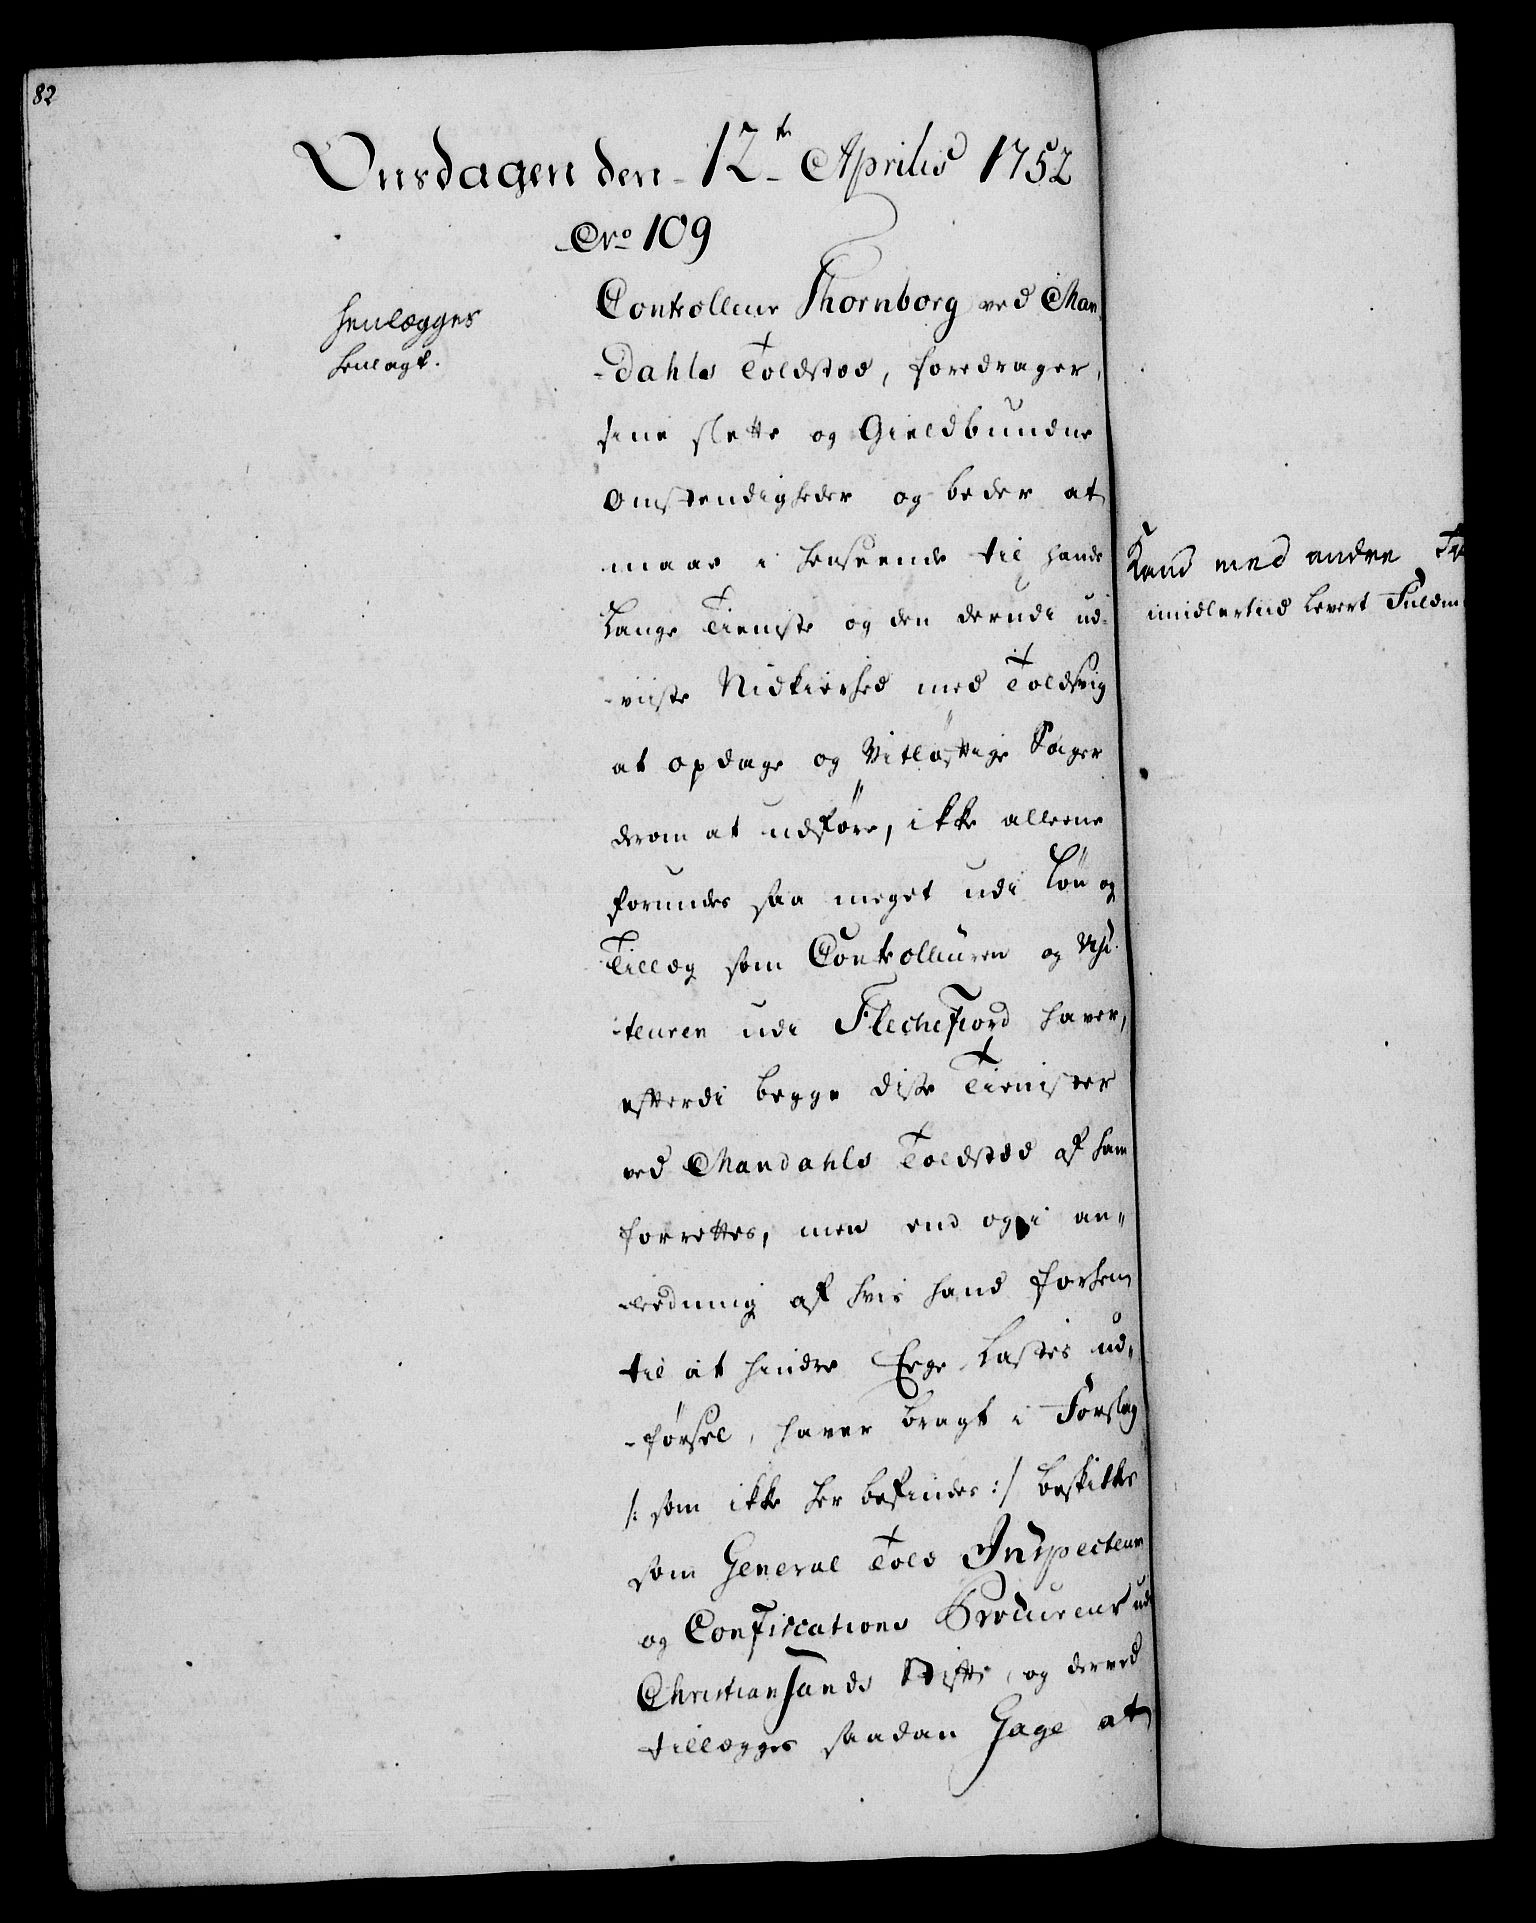 82
Onsdagen den 12te Aprilis 1752
No 109
henlægges
henlagt.
Controlleur Thornborg ved Man
-dahls Toldstod, foredrager,
sine slette og Gieldbundne
omstendigheder og beder at
maae i henseende til hands
lange Tieniste og den derudi ud-
-viiste Nidkierhed med Toldsvig
at opdage og Vitløftige Sager
derom at udføre, ikke alleene
forundes saa meget udi Løn og
Tillæg som Controlleuren og Visi-
-teuren udi Flechefiord haver,
efterdi begge disse Tienister
ved Mandahls Toldstod af ham
forrettes, men end og i an-
-ledning af hvis hand forhen
til at hindre Eege Lastes ud-
-førsel, haver bragt i Forslag
/: som ikke her befindes :/ beskikkes
som General Told Inspecteur
og Confiscations Procureur udi
Christiansands Stift, og derved
tillægges saadan Gage at
Kand med andre
imidlertiid levert Fuldm